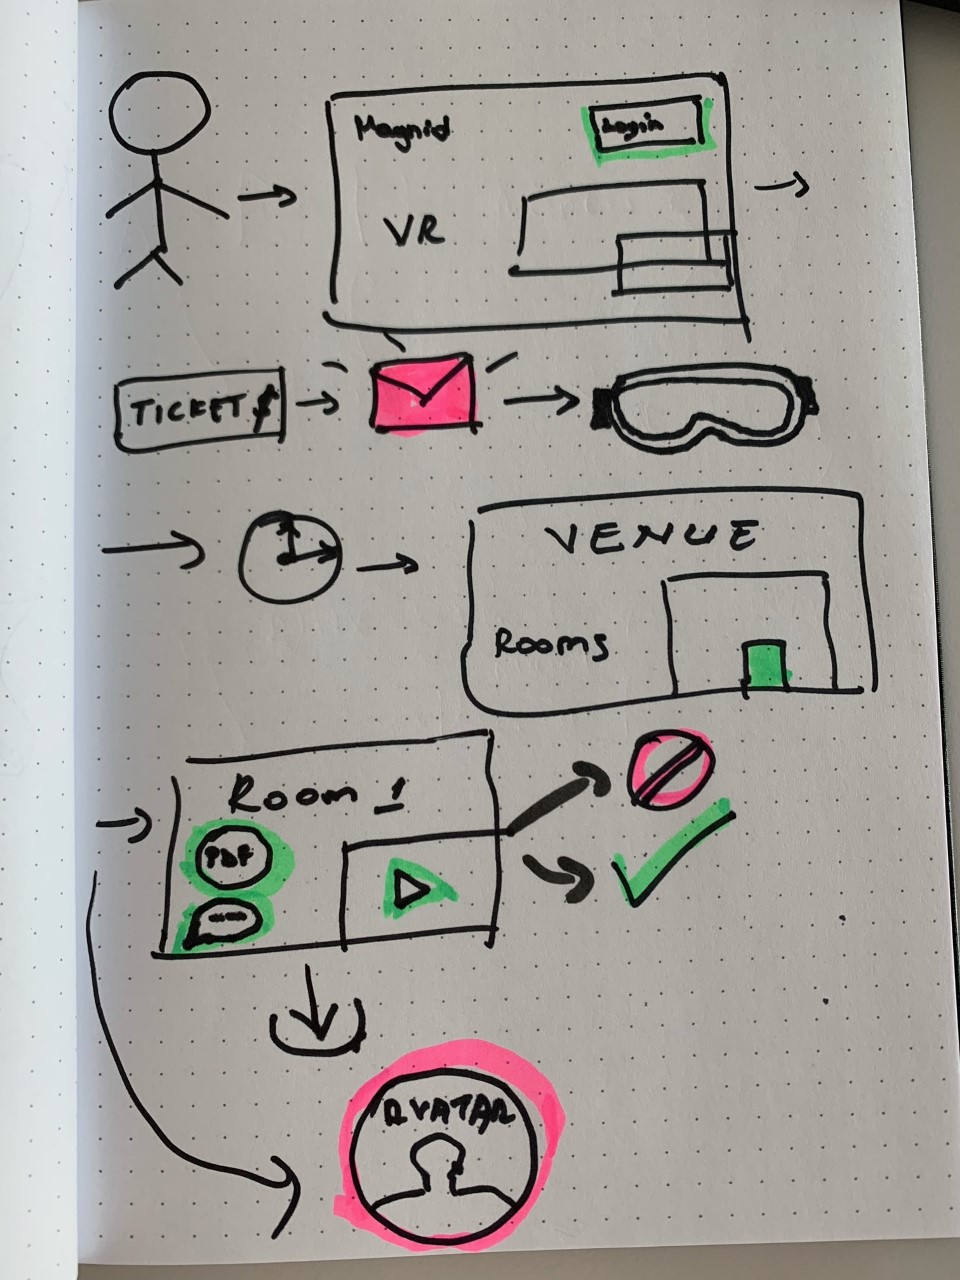 Magnid
Login
VR
TICKET $
VENUE
Rooms
Room 1
PDF
AVATAR